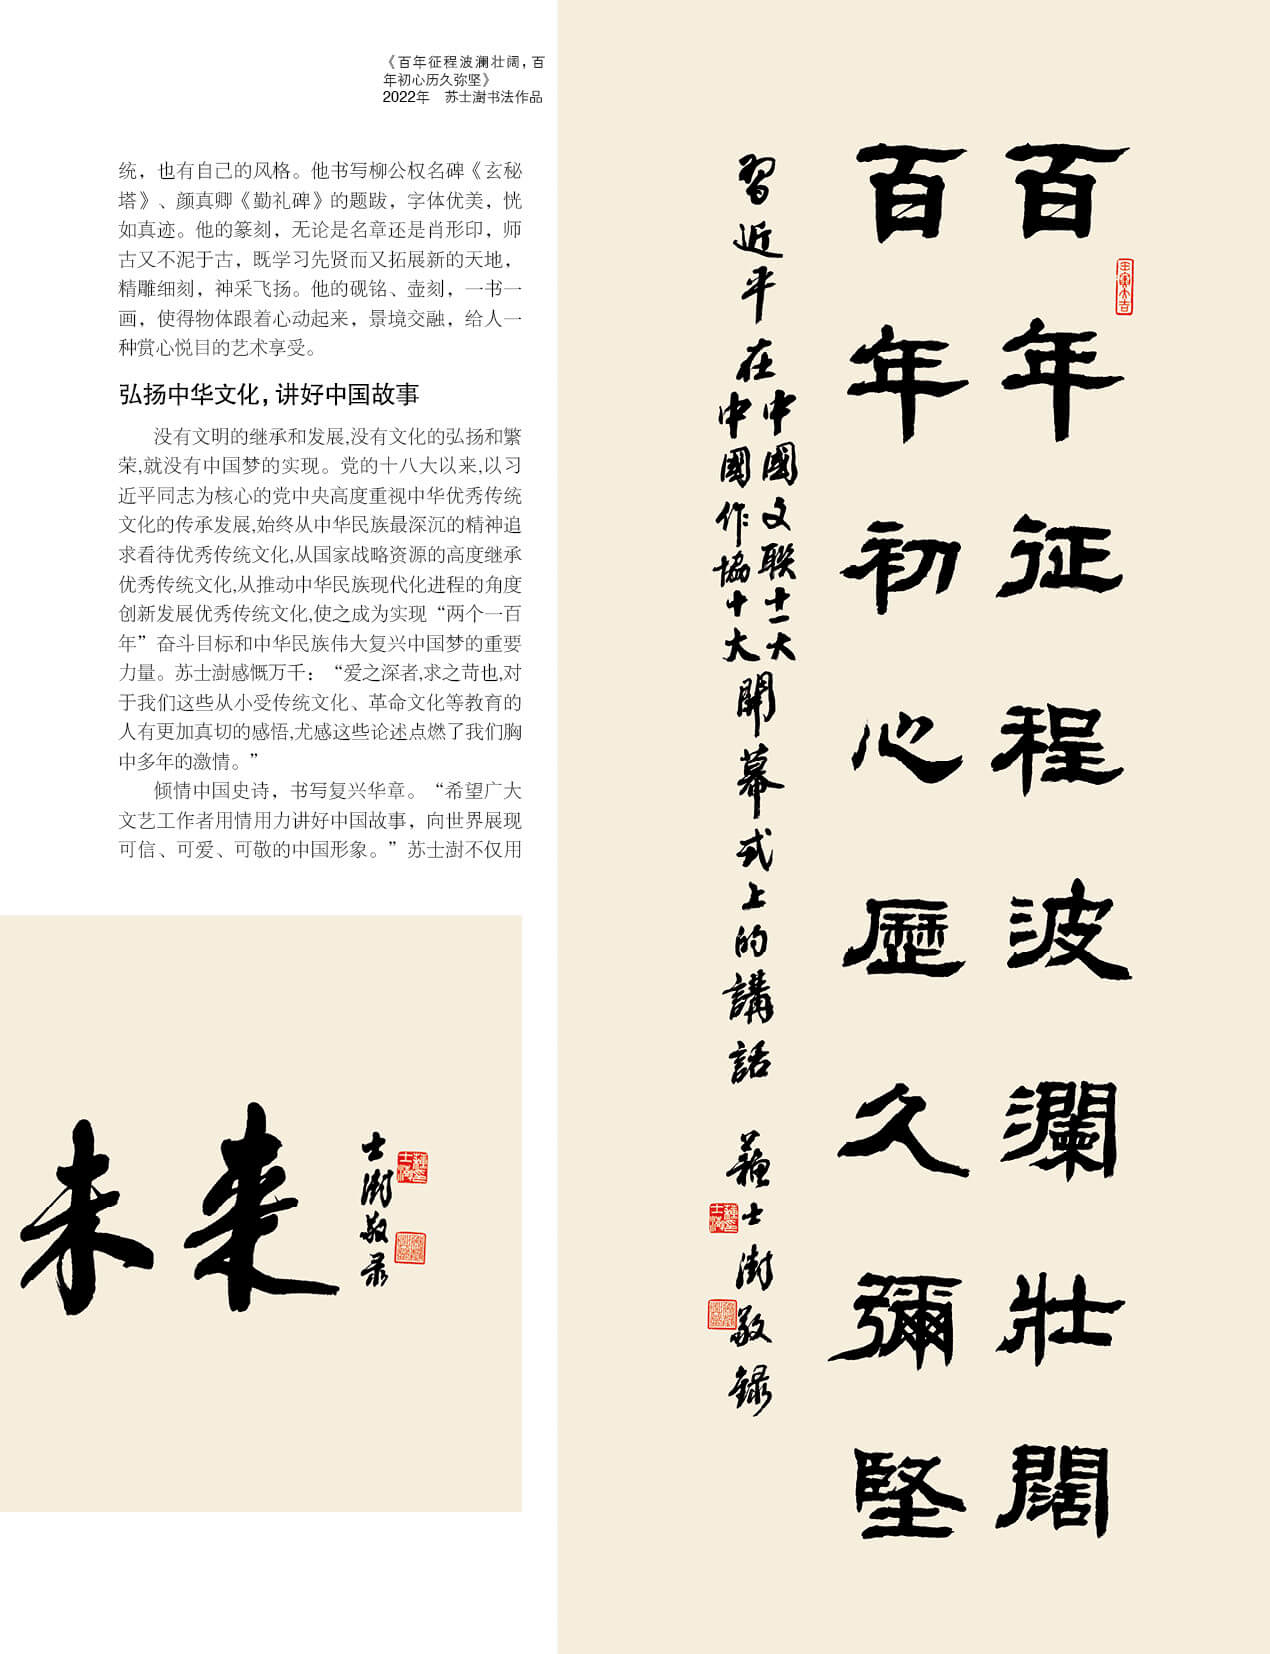 《百年征程波澜壮阔，百
年初心历久弥坚》
2022年　苏士澍书法作品
统，也有自己的风格。他书写柳公权名碑《玄秘
塔》、颜真卿《勤礼碑》的题跋，字体优美，恍
如真迹。他的篆刻，无论是名章还是肖形印，师
古又不泥于古，既学习先贤而又拓展新的天地，
精雕细刻，神采飞扬。他的砚铭、壶刻，一书一
画，使得物体跟着心动起来，景境交融，给人一
种赏心悦目的艺术享受。
弘扬中华文化，讲好中国故事
没有文明的继承和发展,没有文化的弘扬和繁
荣,就没有中国梦的实现。党的十八大以来,以习
近平同志为核心的党中央高度重视中华优秀传统
文化的传承发展,始终从中华民族最深沉的精神追
求看待优秀传统文化,从国家战略资源的高度继承
优秀传统文化,从推动中华民族现代化进程的角度
创新发展优秀传统文化,使之成为实现“两个一百
年”奋斗目标和中华民族伟大复兴中国梦的重要
力量。苏士澍感慨万千：“爱之深者,求之苛也,对
于我们这些从小受传统文化、革命文化等教育的
人有更加真切的感悟,尤感这些论述点燃了我们胸
中多年的激情。”
倾情中国史诗，书写复兴华章。“希望广大
文艺工作者用情用力讲好中国故事，向世界展现
可信、可爱、可敬的中国形象。”苏士澍不仅用
百年征程波瀾壯闊
百年初心歷久彌堅
習近平在
中國文聯十一大
中國作協十大
開幕式上的講話
蘇士澍敬錄
壬寅大吉
未来
士澍敬录